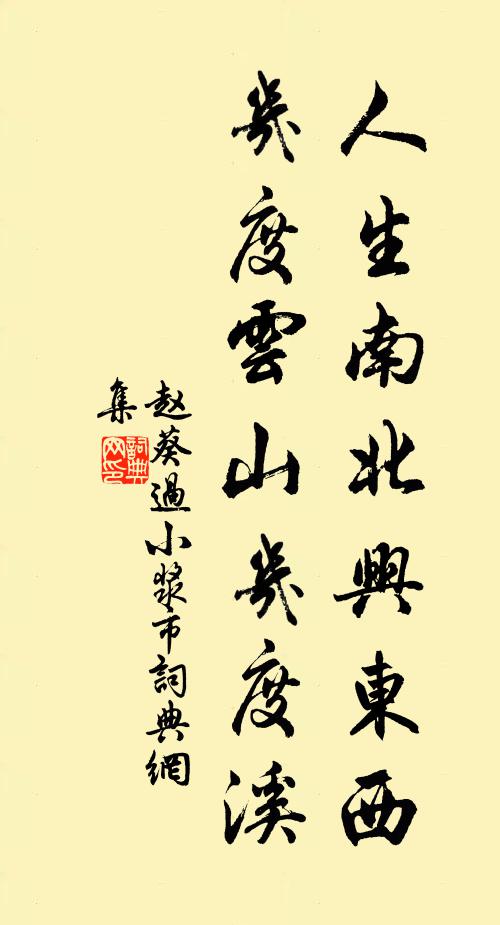 人生南北興東西
幾度雲山幾度溪
赵葵過小漿市詞典網
集
詞典
网印